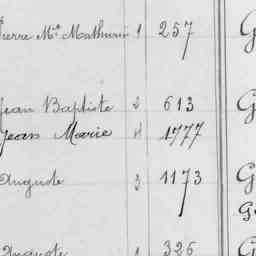 Pierre Mie Mathurin 1 257 G
Jean Baptiste 2 613 G
Jean Marie 4 1777
Auguste 3 1173 G
G
Auguste 1 326 G